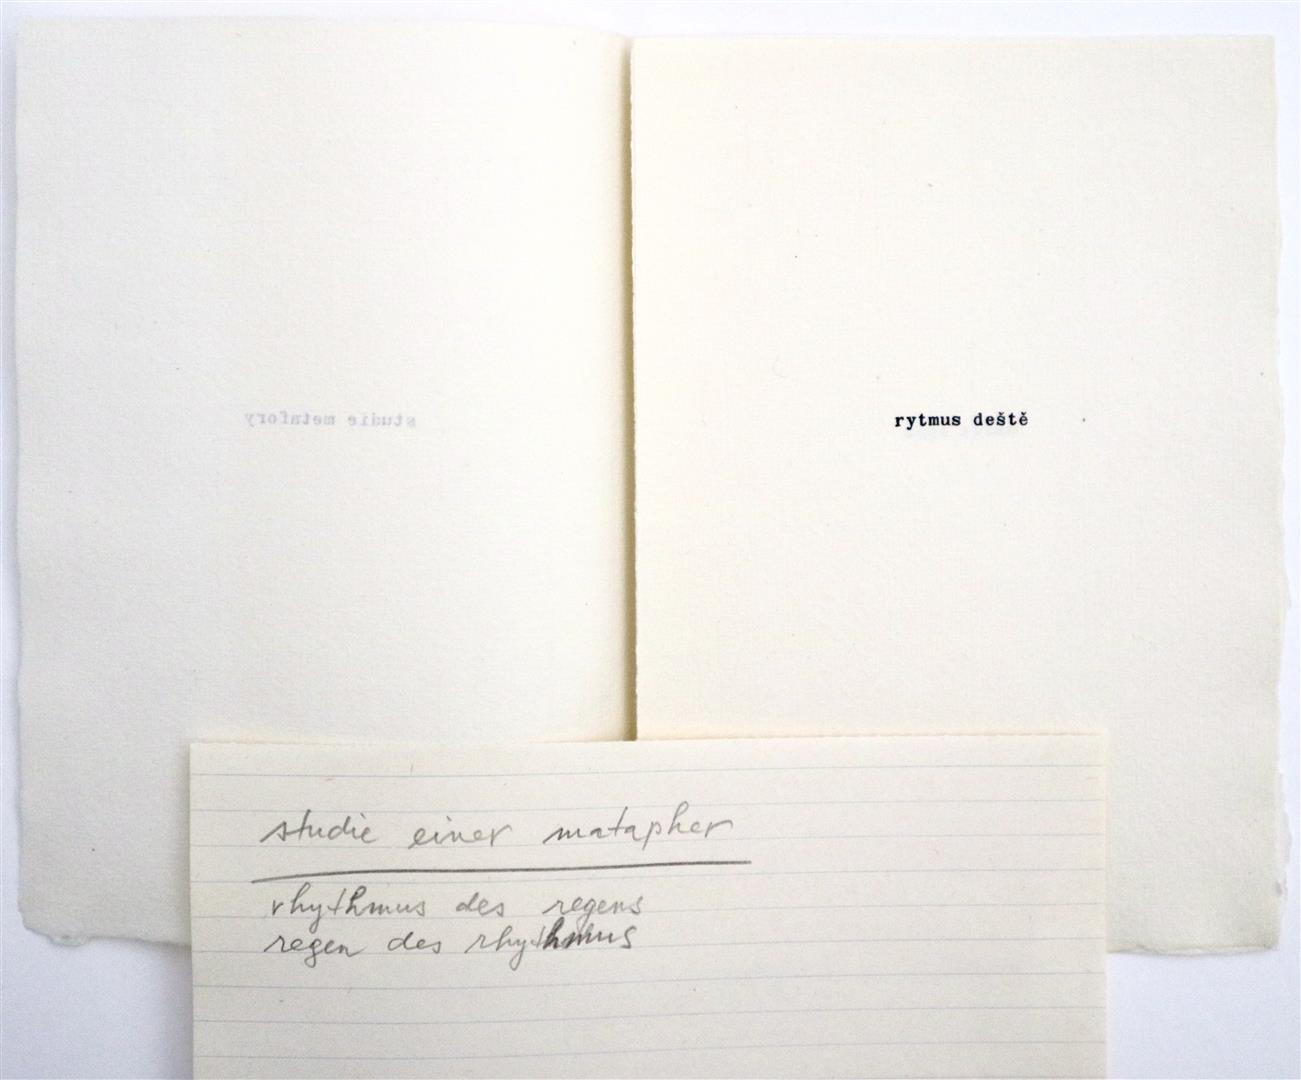 studie metafory
rytmus deště
studie einer matapher
rhythmus des regens
regen des rhythmus